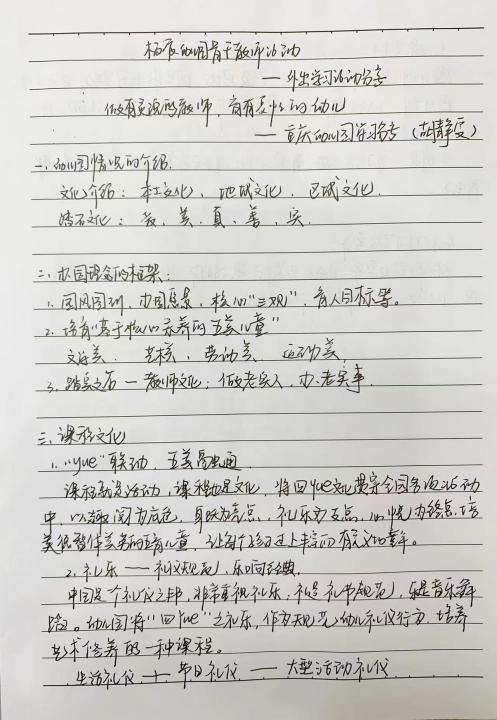 幼儿园骨干教师活动
——外出学习活动分享
做有灵魂的教师，育有灵性的幼儿
——重庆幼儿园学习分享（胡静受）
一、幼儿园情况的介绍.
文化介绍：本土文化、地域文化、区域文化.
踏石文化：美、真、善、实.
二、办园理念的框架：
1、园风园训、办园愿景、核心“三观”、育人目标等。
2、培育“基于核心素养的五美儿童”
文海美、艺术美、劳动美、运动美.
3、踏实之石——教师文化：做老实人、办老实事.
三、课程文化
1、“yue”联动，五美
课程就是活动，课程也是文化，将四yue文化贯穿全园各项活动
中，以趣阅为底色，为亮点，礼乐为支点，以悦为终点，培
美儿童，让每个孩子过上丰富而有意义的童年。
2、礼乐——礼仪规范，乐响经典.
中国是个礼仪之邦，非常重视礼乐：礼是礼节规范，乐是音乐舞
蹈。幼儿园将“四yue”之礼乐，作为规范幼儿礼仪行为、培养
艺术修养的一种课程。
生活礼仪＋节日礼仪——大型活动礼仪